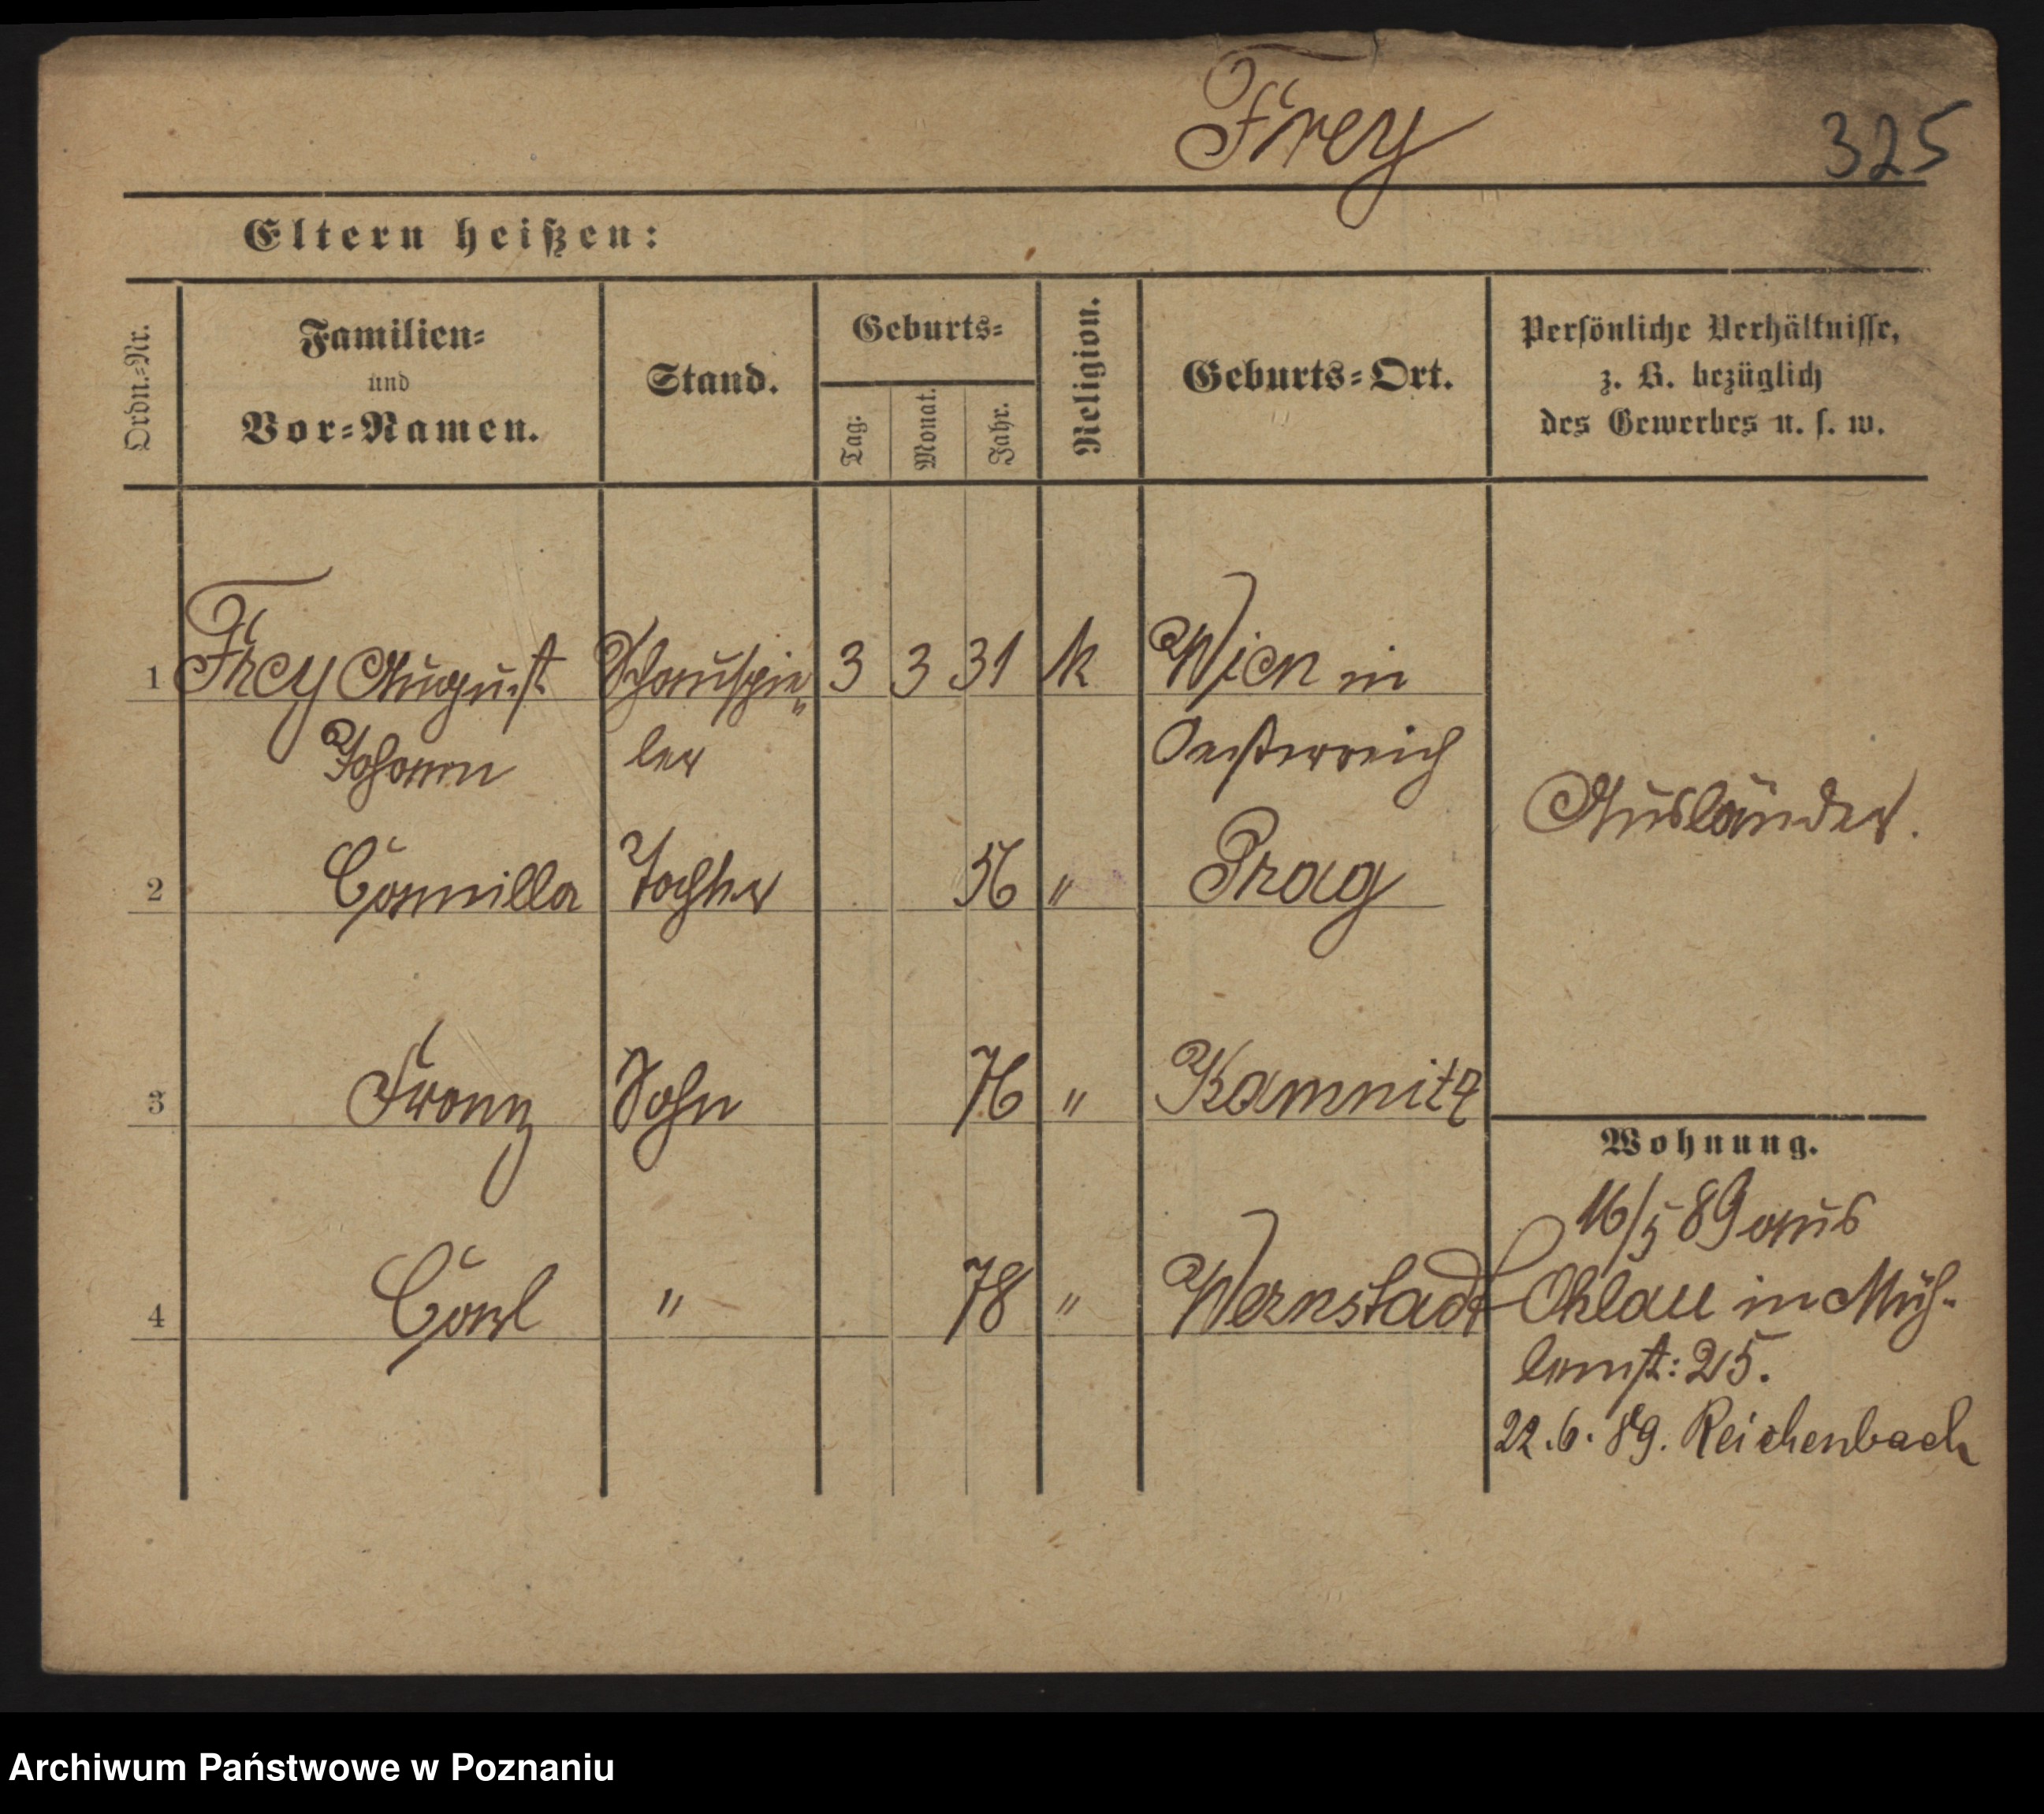 Frey
325
Eltern heißen:
Ordn.-Nr.
Familien-
und
Vor-Namen.
Stand.
Geburts-
Tag:
Monat.
Jahr.
Religion.
Geburts-Ort.
Persönliche Verhältnisse,
z. B. bezüglich
des Gewerbes u. s. w.
1 Frey August Schauspie„ 3 3 31 k Wien in
Johann ler Oesterreich
Ausländer.
2 Camilla Tochter 56 " Prag
3 Franz Sohn 76 " Kamnitz
Wohnung.
16/5 89 aus
4 Carl " 78 " Wernstadt
Ohlau in Müh-
lenst: 25.
22.6.89. Reichenbach
Archiwum Państwowe w Poznaniu